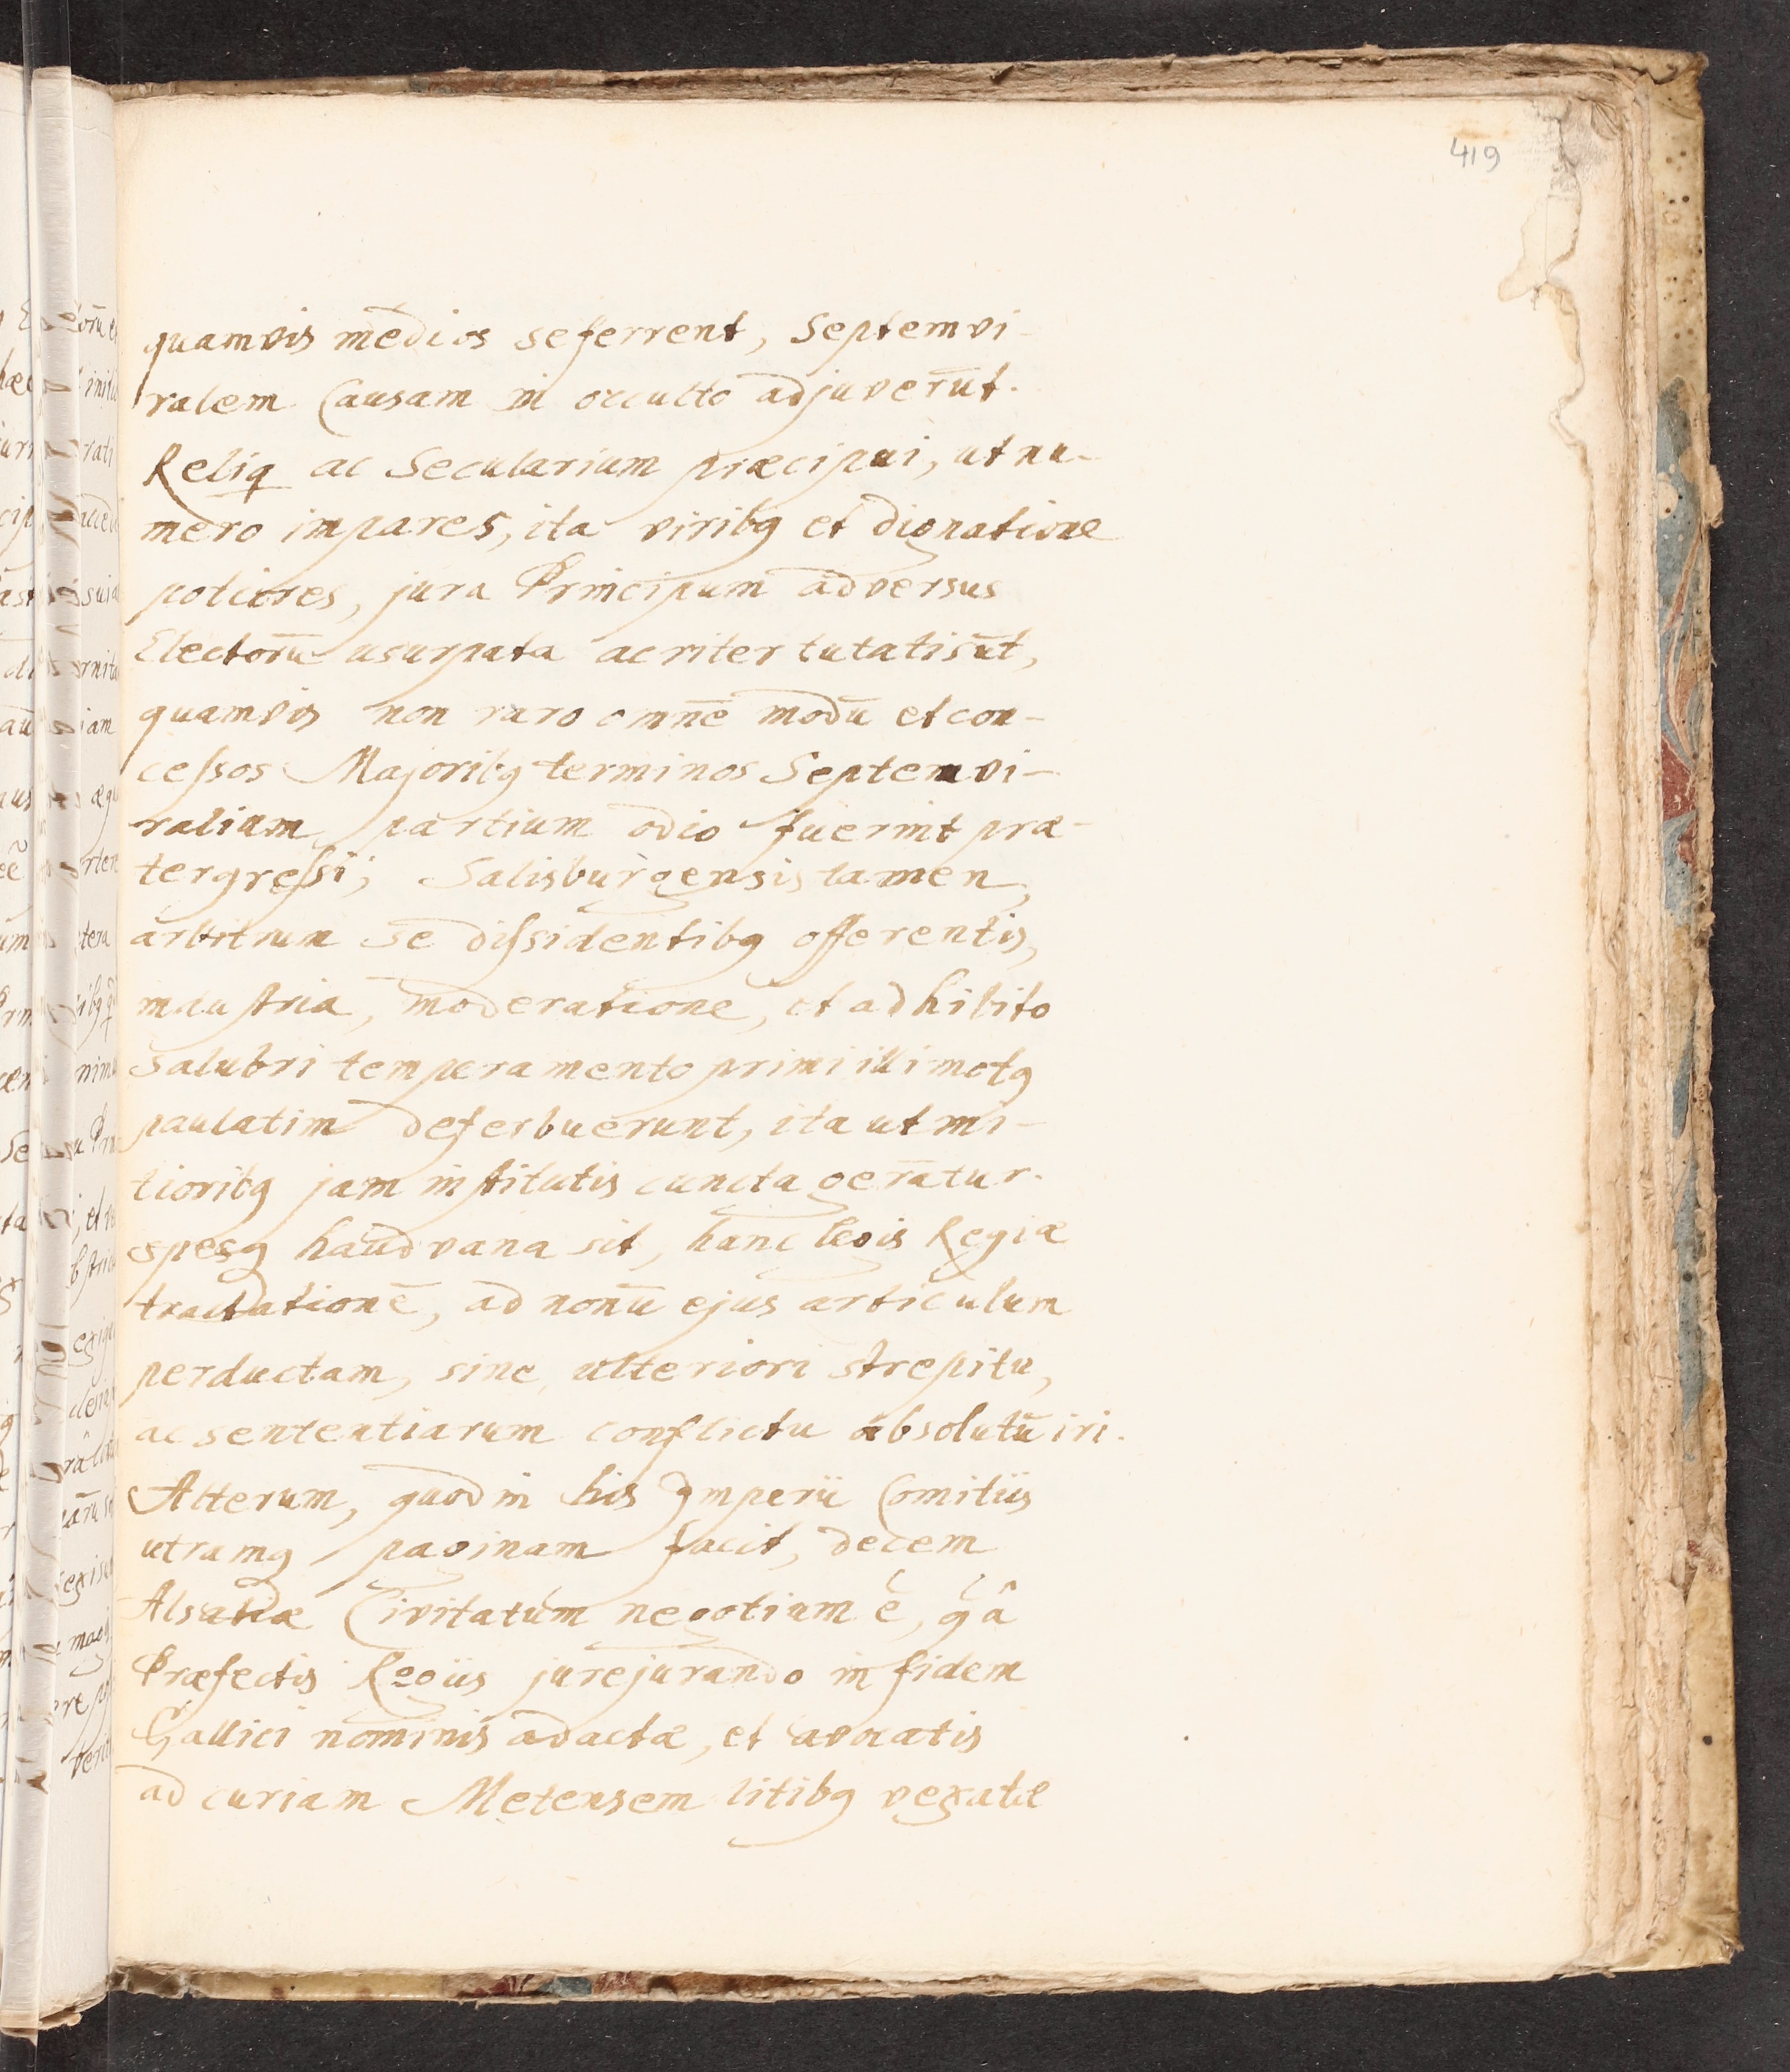 419
quamvis medios se ferrent, Septemvi-
ralem Causam in occulto adjuverūt.
Reliq ac Secularium præcipui, ut nu-
mero impares, ita viribq et dignatione
potiores, jura Principum adversus
Electorū usurpata acriter tutati sūt,
quamvis non raro omnē modū et con-
cessos Majoribq terminos Septemvi-
ralium partium odio fuerint præ-
tergressi; Salisburgensis tamen,
arbitrum se dissidentibq offerentis,
industria, moderatione, et adhibito
salubri temperamento primi illi motq
paulatim deferbuerunt, ita ut mi-
tioribq jam institutis cuncta gerātur.
spesq haud vana sit, hanc legis Regiæ
tractationē, ad nonū ejus articulum
perductam, sine ulteriori strepitu,
ac sententiarum conflictu absolutū iri.
Alterum, quod in his Imperii Comitiis
utramq paginam facit, decem
Alsatiæ Civitatum negotium ē, qâ
Præfectis Regiis jurejurando in fidem
Gallici nominis adactæ, et avocatis
ad curiam Metensem litibq vexatæ